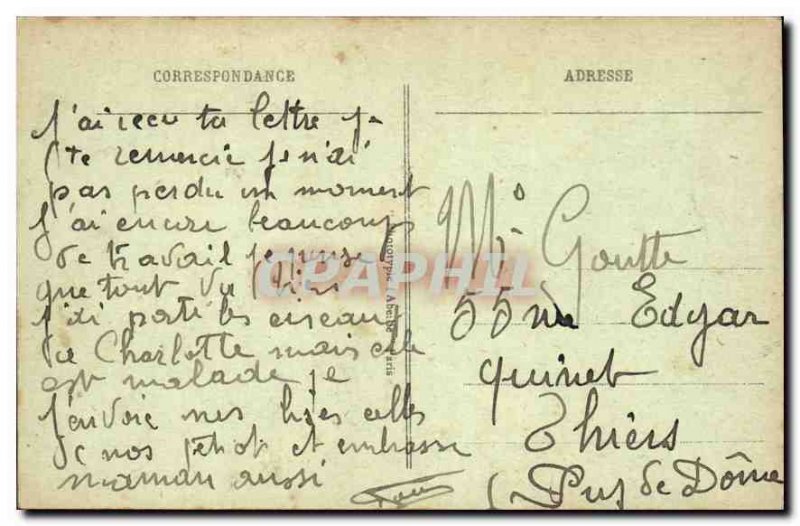 CORRESPONDANCE
j'ai recu ta lettre je
te remercie je n'ai
pas perdu un moment
j'ai encore beaucoups
de travail je pense
que tout va
j'ai porté les ciseaux
de Charlotte mais elle
est malade je
t'envoie mes bises celles
de nos petiot et embrasse
maman aussi
Phototypie Abeille Paris
CPAPHIL
ADRESSE
Mr Goutte
55 rue Edgar
quinet
Thiers
(Puy de Dôme